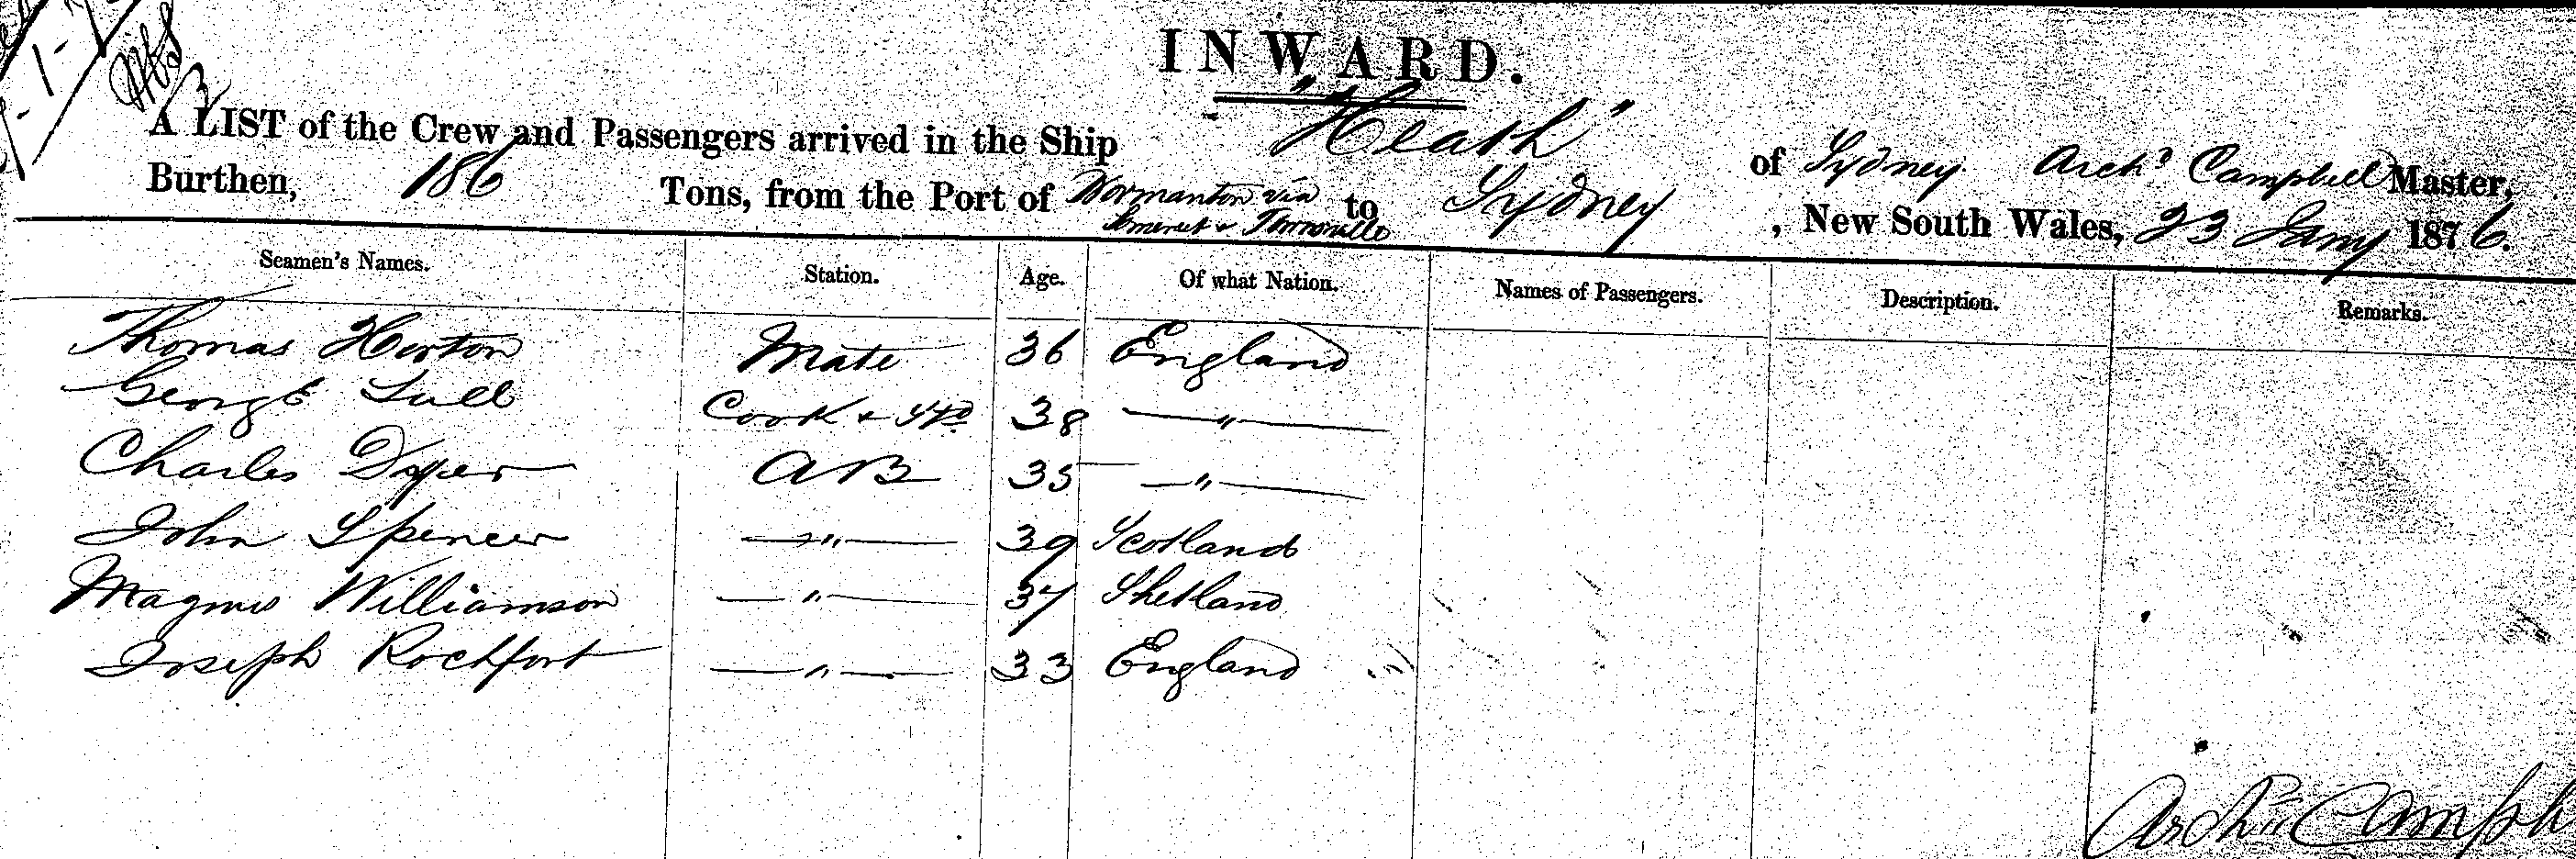 INWARD.
A LIST of the Crew and Passengers arrived in the Ship "Heath" of Sydney Archd Campbell Master,
Burthen, 186 Tons, from the Port of Normanton via Somerset & Townsville to Sydney, New South Wales, 23 Jany 1876.
Seamen's Names. Station. Age. Of what Nation. Names of Passengers. Description. Remarks.
Thomas Horton Mate 36 England
George Lull Cook & Std 38 — " —
Charles Dyer AB 35 — " —
John Spencer — " — 39 Scotland
Magnus Williamson — " — 37 Shetland
Joseph Rochfort — " — 33 England
Archd Campb